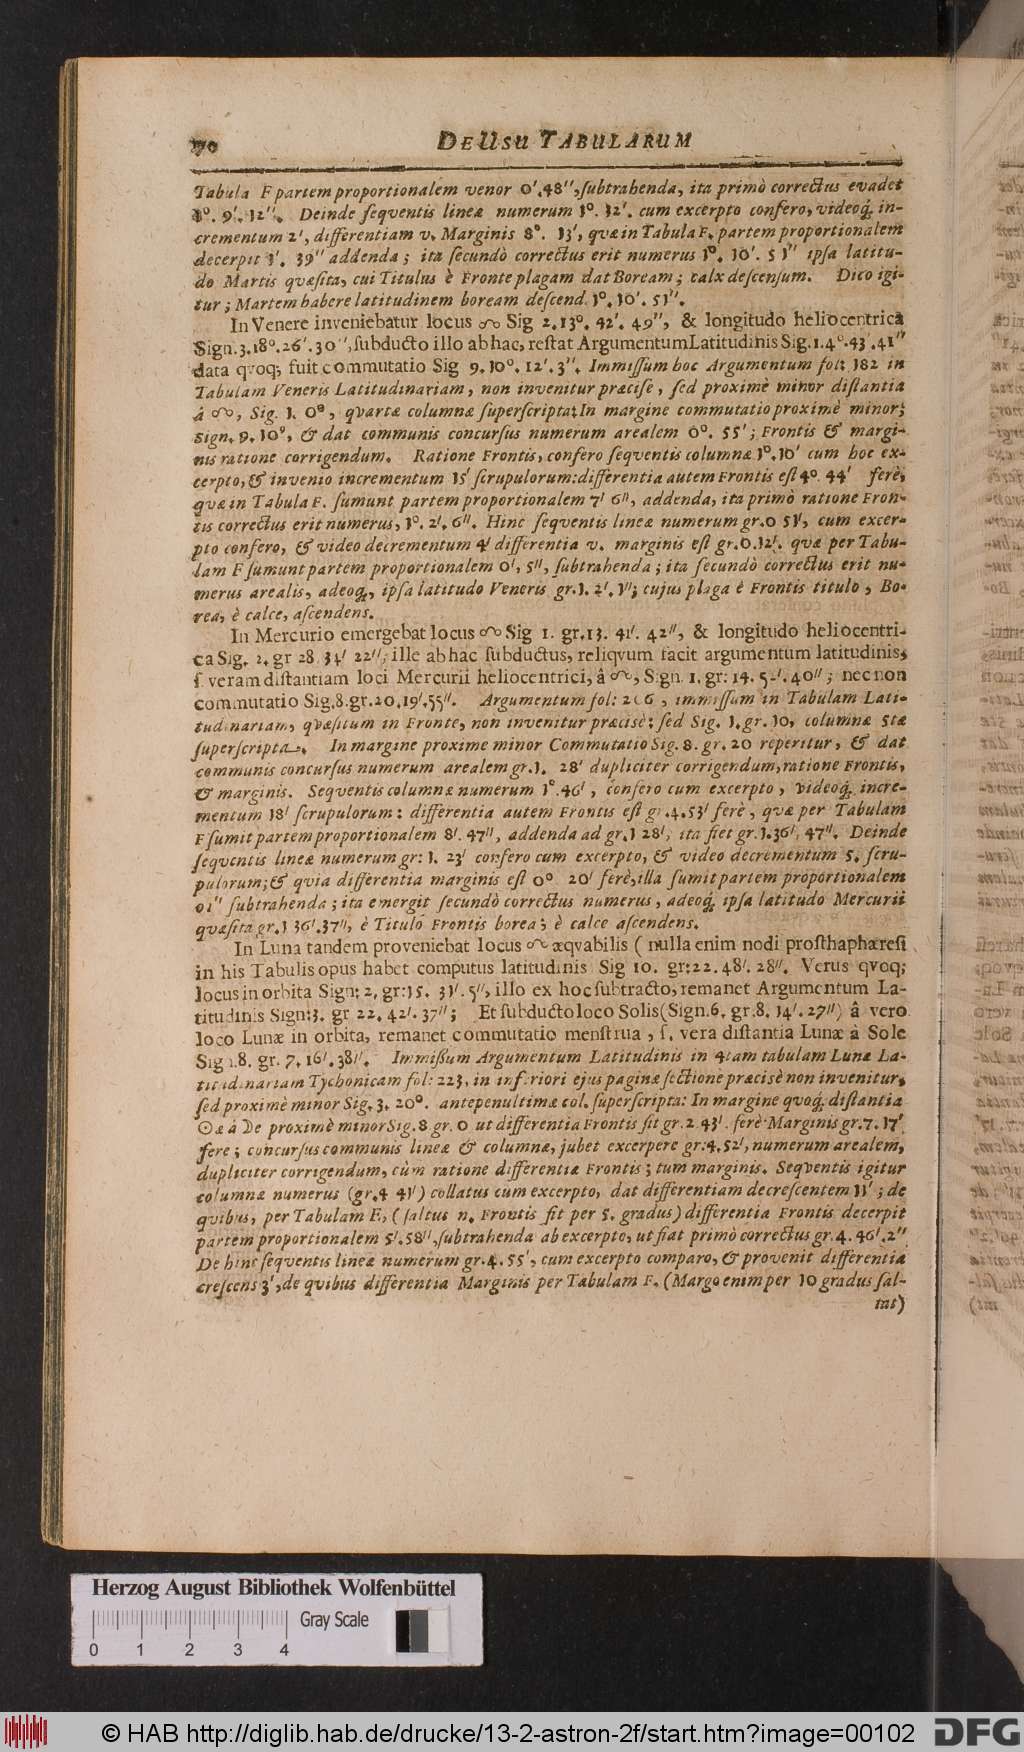 70 DE USU TABULARUM
Tabula F partem proportionalem venor 0'.48'', ſubtrahenda, ita primò correctus evadet
1°. 9'. 12''. Deinde ſeqventis lineæ numerum 1°. 12'. cum excerpto confero, videoq; in-
crementum 2', differentiam v. Marginis 8°. 13', quæ in Tabula F. partem proportionalem
decerpit 1'. 39'' addenda; ita ſecundò correctus erit numerus 1°. 10'. 51'' ipſa latitu-
do Martis quæſita, cui Titulus è Fronte plagam dat Boream; calx deſcenſum. Dico igi-
tur; Martem habere latitudinem boream deſcend. 1°. 10'. 51''.
In Venere inveniebatur locus ☊ Sig 2.13°. 42'. 49'', & longitudo heliocentrica
Sign.3.18°.26'.30'', ſubducto illo ab hac, reſtat Argumentum Latitudinis Sig.1.4°.43'.41''
data qvoq; fuit commutatio Sig 9.10°. 12'. 3''. Immiſſum hoc Argumentum fol: 182 in
Tabulam Veneris Latitudinariam, non invenitur præciſe, ſed proximè minor diſtantia
â ☊, Sig. 1. 0°, qvartæ columnæ ſuperſcripta; In margine commutatio proximè minor;
Sign. 9. 10°, & dat communis concurſus numerum arealem 0°. 55'; Frontis & margi-
nis ratione corrigendum. Ratione Frontis, confero ſeqventis columnæ 1°.10' cum hoc ex-
cerpto, & invenio incrementum 15' ſcrupulorum: differentia autem Frontis eſt 4°. 44' ferè,
quæ in Tabula F. ſumunt partem proportionalem 7' 6'', addenda, ita primò ratione Fron-
tis correctus erit numerus, 1°. 2'. 6''. Hinc ſeqventis lineæ numerum gr.0 51', cum excer-
pto confero, & video decrementum 4' differentia v. marginis eſt gr.0.12'. quæ per Tabu-
lam F ſumunt partem proportionalem 0', 5'', ſubtrahenda; ita ſecundò correctus erit nu-
merus arealis, adeoq;, ipſa latitudo Veneris gr.1. 2'. 1''; cujus plaga è Frontis titulo, Bo-
rea, è calce, aſcendens.
In Mercurio emergebat locus ☊ Sig 1. gr.13. 41'. 42'', & longitudo heliocentri-
ca Sig. 2. gr 28. 34' 22''; ille ab hac ſubductus, reliqvum facit argumentum latitudinis,
ſ. veram diſtantiam loci Mercurii heliocentrici, â ☊, Sign. 1. gr: 14. 52'. 40''; nec non
commutatio Sig.8.gr.20.19'.55''. Argumentum fol: 206, immiſſum in Tabulam Lati-
tudinariam, qvæſitum in Fronte, non invenitur præcisè: ſed Sig. 1.gr.10, columnæ 5tæ
ſuperſcripta. In margine proxime minor Commutatio Sig. 8. gr. 20 reperitur, & dat
communis concurſus numerum arealem gr.1. 28' dupliciter corrigendum, ratione Frontis,
& marginis. Seqventis columnæ numerum 1°.46', confero cum excerpto, videoq; incre-
mentum 18' ſcrupulorum: differentia autem Frontis eſt gr.4.53' ferè, quæ per Tabulam
F ſumit partem proportionalem 8'. 47'', addenda ad gr.1 28', ita fiet gr.1.36'. 47''. Deinde
ſeqventis lineæ numerum gr: 1. 23' confero cum excerpto, & video decrementum 5. ſcru-
pulorum; & quia differentia marginis eſt 0° 20' ferè, illa ſumit partem proportionalem
01'' ſubtrahenda; ita emergit ſecundò correctus numerus, adeoq; ipſa latitudo Mercurii
quæſita gr.1 36'.37'', è Titulo Frontis borea; è calce aſcendens.
In Luna tandem proveniebat locus ☊ æqvabilis ( nulla enim nodi proſthaphæreſi
in his Tabulis opus habet computus latitudinis Sig 10. gr:22. 48'. 28''. Verus qvoq;
locus in orbita Sign: 2, gr:15. 31'. 5'', illo ex hoc ſubtracto, remanet Argumentum La-
titudinis Sign:3. gr 22. 42'. 37''; Et ſubducto loco Solis (Sign.6. gr.8. 14'. 27'') â vero
loco Lunæ in orbita, remanet commutatio menſtrua, ſ. vera diſtantia Lunæ à Sole
Sign.8. gr. 7. 16'. 38''. Immiſſum Argumentum Latitudinis in 4tam tabulam Lunæ La-
titudinariam Tychonicam fol: 223, in inferiori ejus paginæ ſectione præcisè non invenitur,
ſed proximè minor Sig. 3. 20°. antepenultimæ col. ſuperſcripta: In margine quoq; diſtantia
☉æ à De proximè minor Sig. 8 gr. 0 ut differentia Frontis ſit gr.2.43'. ferè Marginis gr.7.17'
fere; concurſus communis lineæ & columnæ, jubet excerpere gr:4.52', numerum arealem,
dupliciter corrigendum, cùm ratione differentiæ Frontis; tum marginis. Seqventis igitur
columnæ numerus (gr.4 41') collatus cum excerpto, dat differentiam decreſcentem 11'; de
quibus, per Tabulam E, ( ſaltus n. Frontis fit per 5. gradus) differentia Frontis decerpit
partem proportionalem 5'.58'', ſubtrahenda ab excerpto, ut fiat primò correctus gr.4. 46'.2''
De hinc ſeqventis lineæ numerum gr.4. 55', cum excerpto comparo, & provenit differentia
creſcens 3', de qvibus differentia Marginis per Tabulam F. (Margo enim per 10 gradus ſal-
tat)
Herzog August Bibliothek Wolfenbüttel
Gray Scale
0 1 2 3 4
© HAB http://diglib.hab.de/drucke/13-2-astron-2f/start.htm?image=00102
DFG